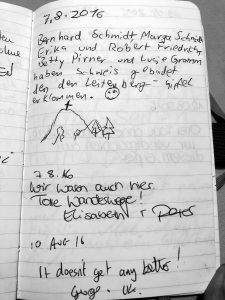 7.8.2016
Bernhard Schmidt Marga Schmidt
Erika und Robert Friedrich
Betty Pirner und Luzie Gromm
haben Schweis gebadet
den den Leitenberg Gipfel
erklommen.
7.8.16
Wir waren auch hier.
Tolle Wanderwege!
Elisabeth + Peter
10 AUG 16
It doesn't get any better!
George. UK.